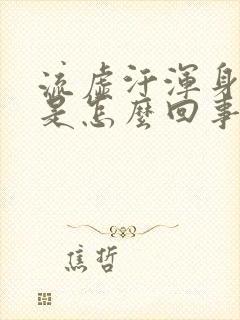 流虛汗渾身
是怎麼回事
焦哲